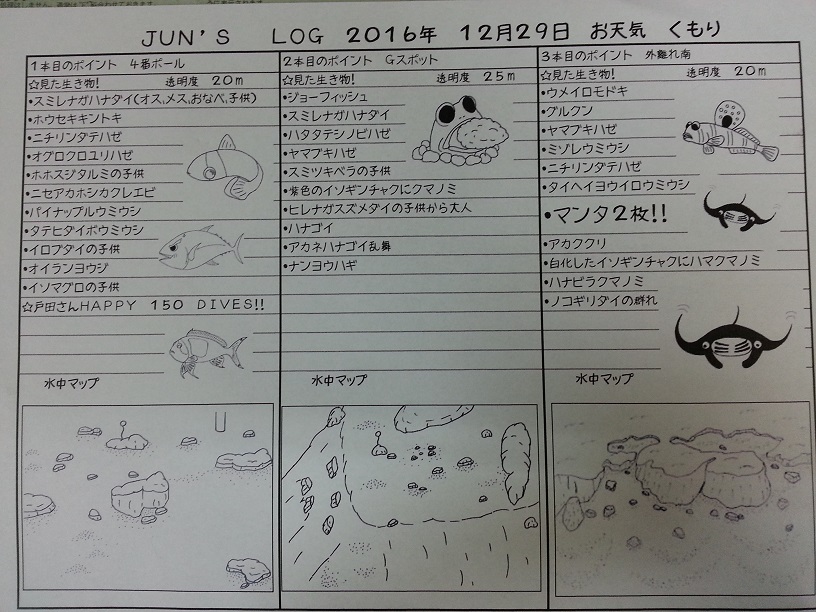 JUN'S LOG 2016年 12月29日 お天気 くもり
1本目のポイント 4番ポール
☆見た生き物! 透明度 20m
•スミレナガハナダイ(オス、メス、おなべ、子供)
•ホウセキキントキ
•ニチリンダテハゼ
•オグロクロユリハゼ
•ホホスジタルミの子供
•ニセアカホシカクレエビ
•パイナップルウミウシ
•タテヒダイボウミウシ
•イロブダイの子供
•オイランヨウジ
•イソマグロの子供
☆戸田さんHAPPY 150 DIVES!!
水中マップ
2本目のポイント Gスポット
☆見た生き物! 透明度 25m
•ジョーフィッシュ
•スミレナガハナダイ
•ハタタテシノビハゼ
•ヤマブキハゼ
•スミツキベラの子供
•紫色のイソギンチャクにクマノミ
•ヒレナガスズメダイの子供から大人
•ハナゴイ
•アカネハナゴイ乱舞
•ナンヨウハギ
水中マップ
3本目のポイント 外離れ南
☆見た生き物! 透明度 20m
•ウメイロモドキ
•グルクン
•ヤマブキハゼ
•ミゾレウミウシ
•ニチリンダテハゼ
•タイヘイヨウイロウミウシ
•マンタ2枚!!
•アカククリ
•白化したイソギンチャクにハマクマノミ
•ハナビラクマノミ
•ノコギリダイの群れ
水中マップ